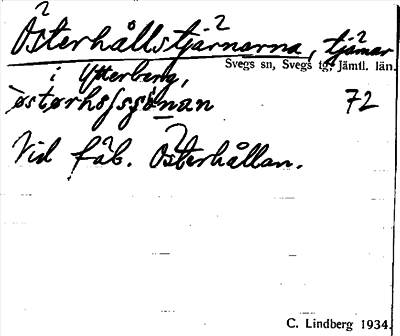 Österhållstjärnarna, tjärnar
Svegs sn, Svegs tg, Jämtl. län.
i Ytterberg,
72
Vid fäb. Österhållan.
C. Lindberg 1934.